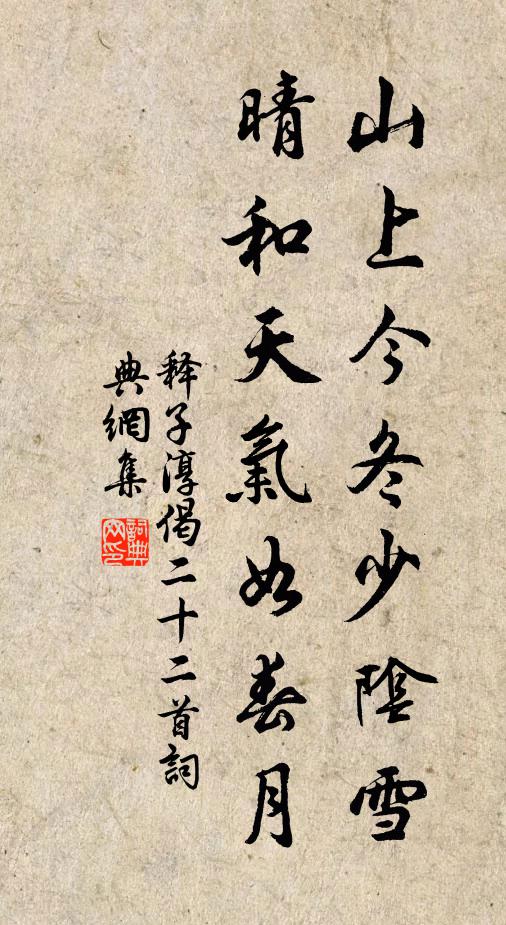 山上今冬少陰雪
晴和天氣如春月
释子淳偈二十二首詞
典網集
詞典
网印